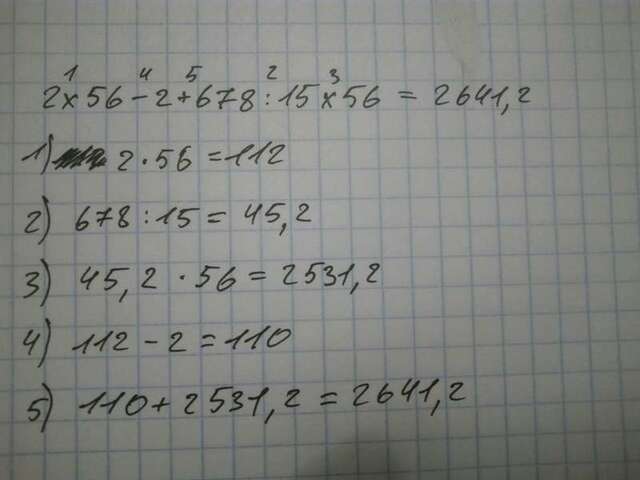 1 4 5 2 3
2x56-2+678:15x56 = 2641,2
1) 2·56=112
2) 678:15= 45,2
3) 45,2·56=2531,2
4) 112-2=110
5) 110+2531,2=2641,2